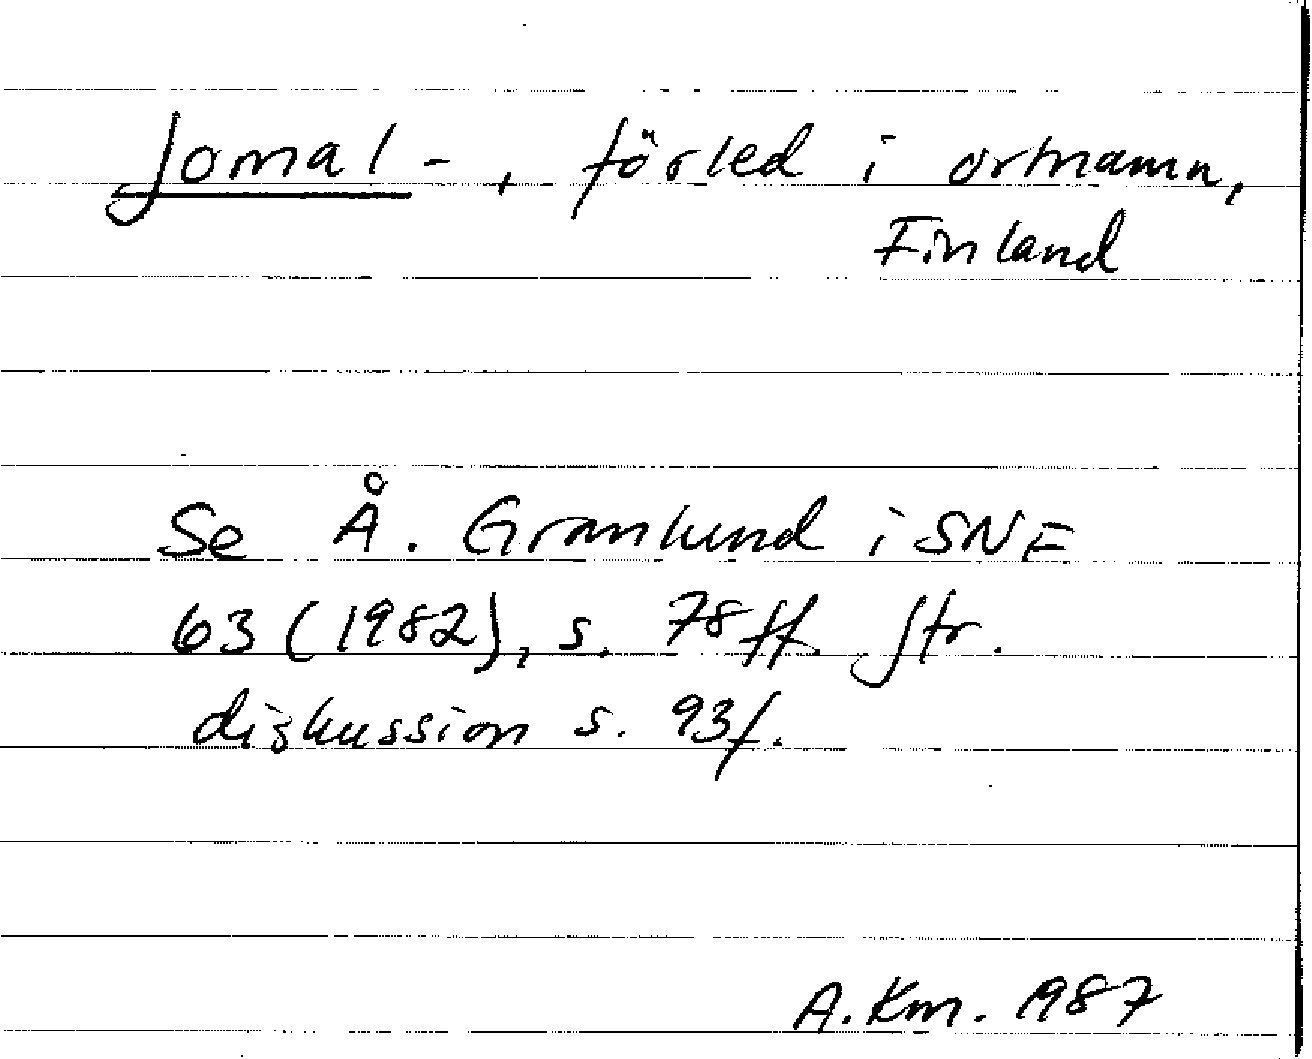 Jomal-, förled i ortnamn,
Finland
Se Å. Granlund i SNF
63 (1982), s. 78 ff. Jfr.
diskussion s. 93 f.
A. Km. 1987